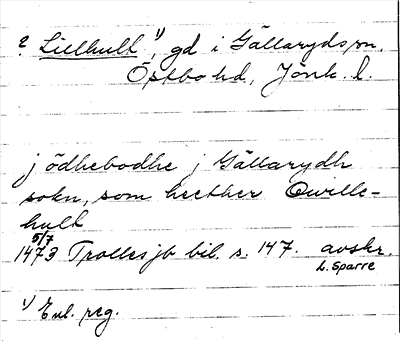 ? Lillhult 1), gd i Gällaryds sn,
Östbo hd, Jönk. l.
j ödhebodhe j Gällarydh
sokn, som heether Qwille-
hult
5/7
1473 Trolles jb bil. s. 147. avskr.
L. Sparre
1) Enl. reg.